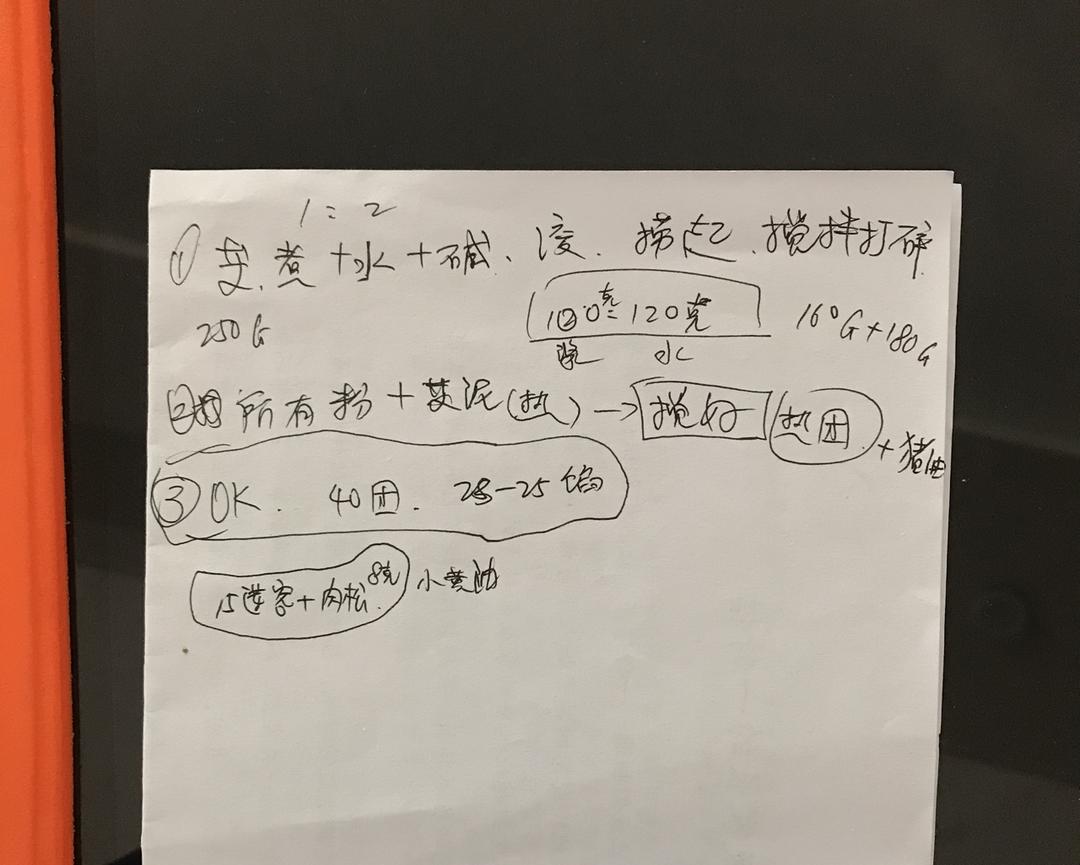 1:2
① 艾、煮+水+碱、滚、捞起、搅拌打碎
250G
100克=120克
160G+180G
水
② 所有粉+艾泥(热)→搅好 热团 +猪油
③ OK. 40团. 25馅
15 +肉松8克 小黄油